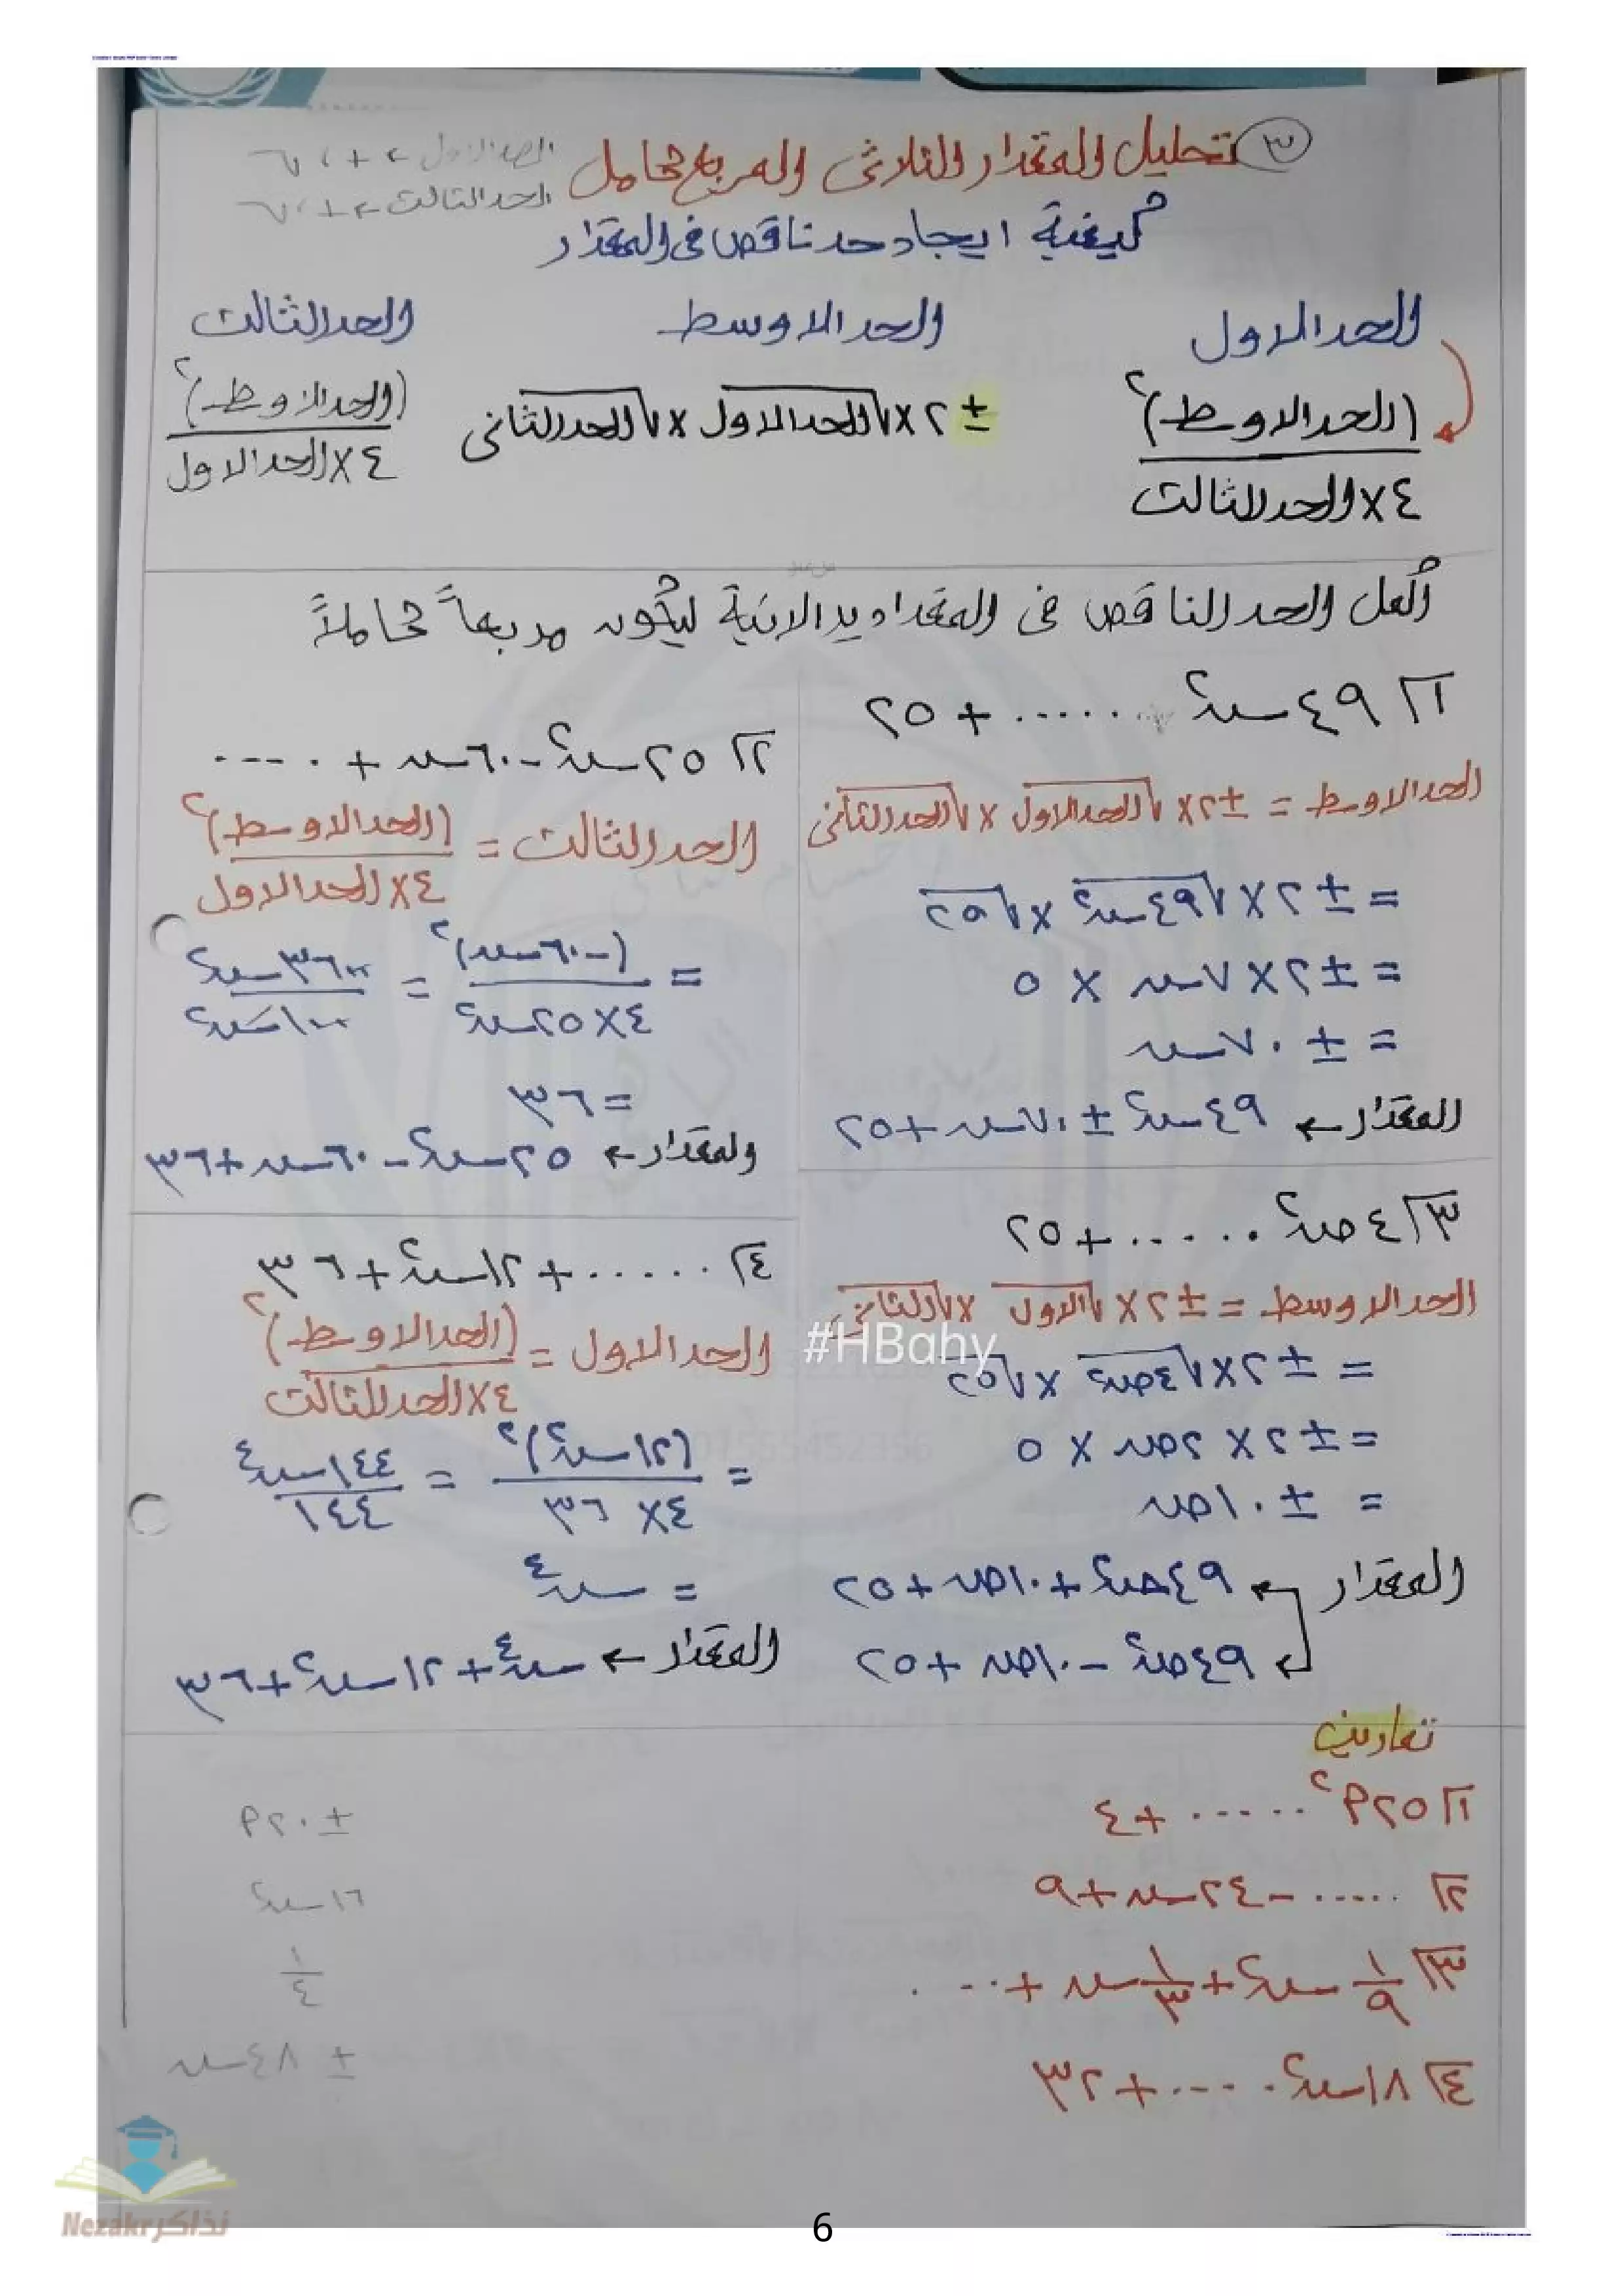 ٣ تحليل المقدار الثلاثى المربع كامل
الحد الاول ← + ، √
الحد الثالث ← + ، √
كيفية ايجاد حد ناقص فى المقدار
الحد الاول الحد الاوسط الحد الثالث
(الحد الاوسط)² / ٤ × الحد الثالث
± ٢ × √الحد الاول × √الحد الثانى
(الحد الاوسط)² / ٤ × الحد الاول
أكمل الحد الناقص فى المقادير الاتية ليكون مربعاً كاملاً
١ ٤٩ س² ...... + ٢٥
الحد الاوسط = ± ٢ × √الحد الاول × √الحد الثانى
= ± ٢ × √٤٩ س² × √٢٥
= ± ٢ × ٧ س × ٥
= ± ٧٠ س
المقدار ← ٤٩ س² ± ٧٠ س + ٢٥
٢ ٢٥ س² - ٦٠ س + ....
الحد الثالث = (الحد الاوسط)² / ٤ × الحد الاول
= (-٦٠ س)² / ٤ × ٢٥ س² = ٣٦٠٠ س² / ١٠٠ س²
= ٣٦
المقدار ← ٢٥ س² - ٦٠ س + ٣٦
٣ ٤ ص² ...... + ٢٥
الحد الاوسط = ± ٢ × √الاول × √الثانى
= ± ٢ × √٤ص² × √٢٥
= ± ٢ × ٢ص × ٥
= ± ١٠ ص
المقدار ← ٤٩ ص² + ١٠ ص + ٢٥
← ٤٩ ص² - ١٠ ص + ٢٥
٤ ...... + ١٢ س² + ٣٦
الحد الاول = (الحد الاوسط)² / ٤ × الحد الثالث
= (١٢ س²)² / ٤ × ٣٦ = ١٤٤ س⁴ / ١٤٤
= س⁴
المقدار ← س⁴ + ١٢ س² + ٣٦
#HBahy
تمارين
١ ٢٥ م² ...... + ٤ ± ٢٠ م
٢ ...... - ٢٤ س + ٩ ١٦ س²
٣ ١/٩ س² + ١/٣ س + .... ١/٤
٤ ٨١ س² ..... + ٣٢ ± ٨٤ س
نذاكر Nezakr
6